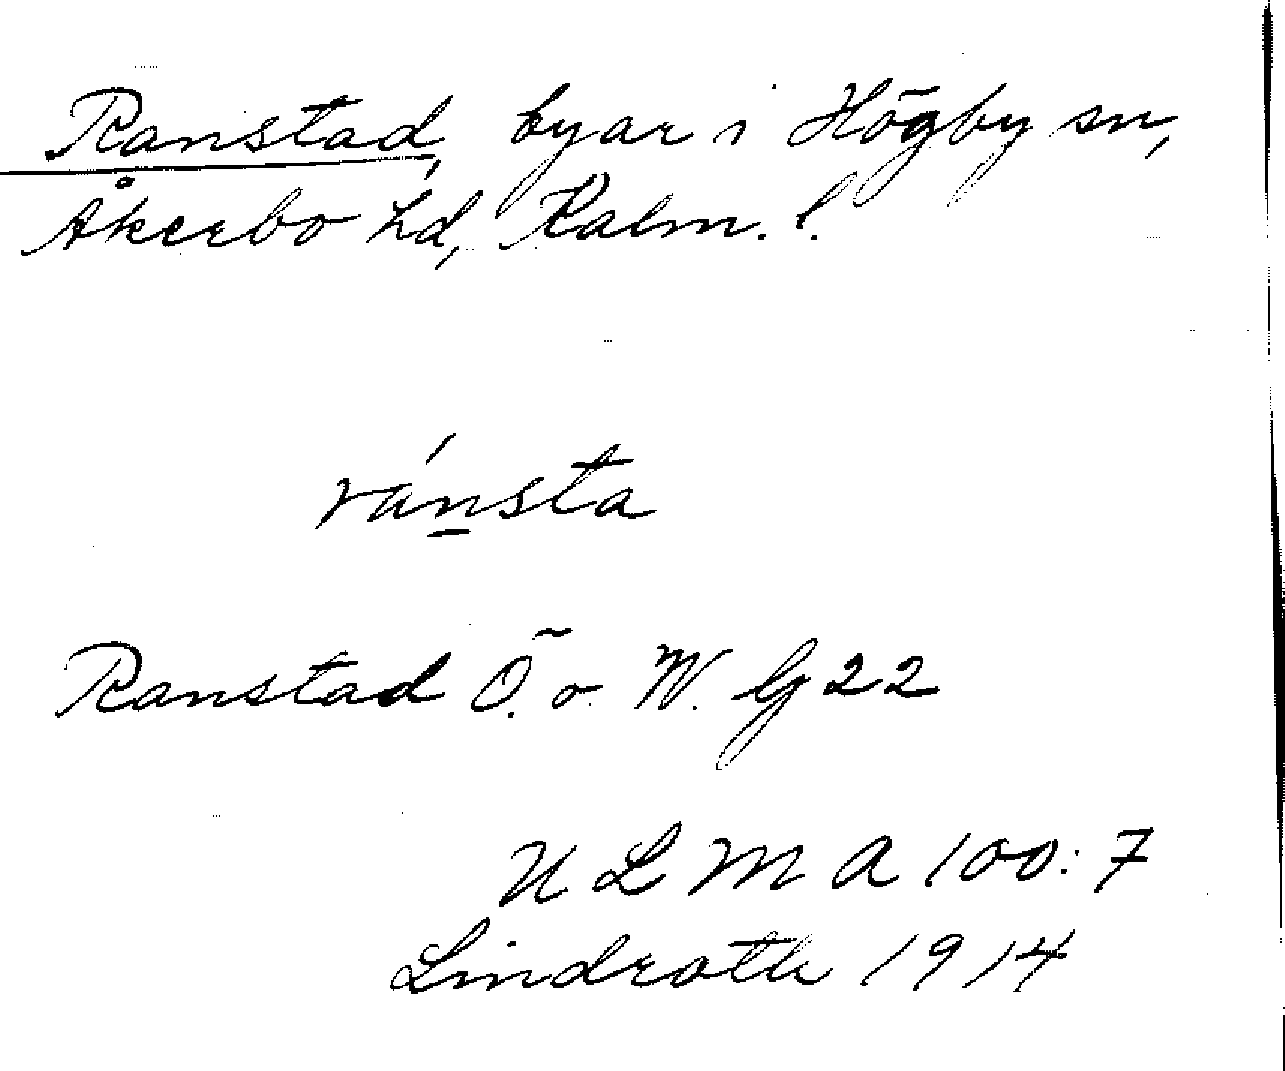 Ranstad, byar i Högby sn,
Åkerbo hd, Kalm. l.
ránsta
Ranstad Ö. o. W. Gj 22
ULMA 100:7
Lindroth 1914